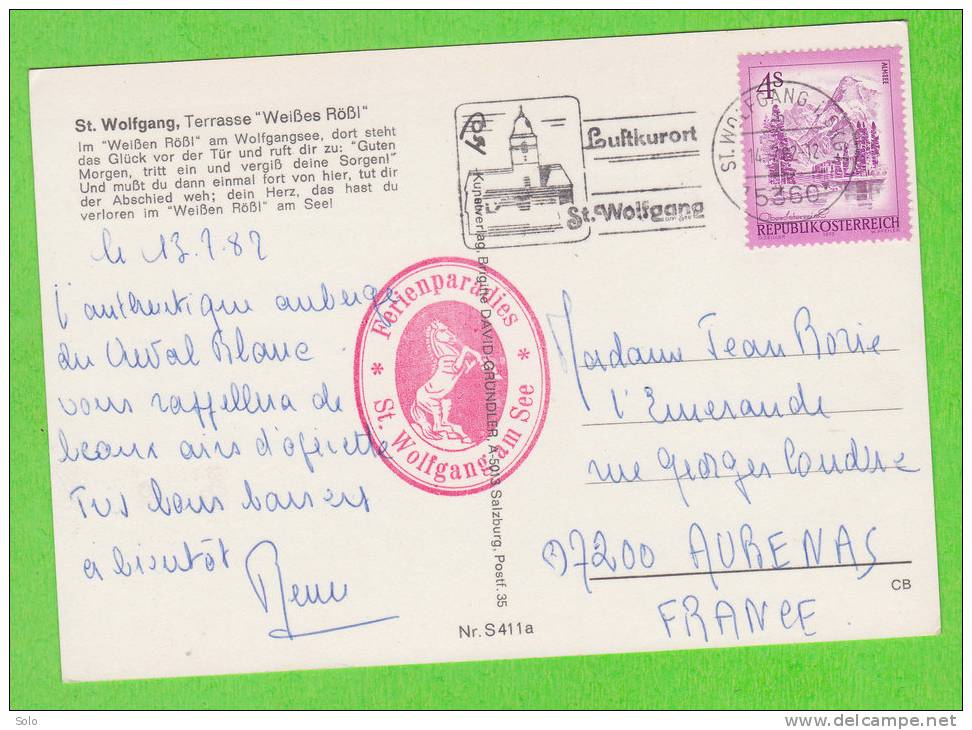 St. Wolfgang, Terrasse "Weißes Rößl"
Im "Weißen Rößl" am Wolfgangsee, dort steht
das Glück vor der Tür und ruft dir zu: "Guten
Morgen, tritt ein und vergiß deine Sorgen!"
Und mußt du dann einmal fort von hier, tut dir
der Abschied weh; dein Herz, das hast du
verloren im "Weißen Rößl" am See!
le 13.7.82
l'authentique auberge
du Cheval Blanc
vous rappellera de
beaux airs d'opérette
Tres bons baisers
a bientôt
Ferienparadies
St. Wolfgang am See
Kunstverlag, Brigitte DAVID-GRÜNDLER, A-5013 Salzburg, Postf. 35
Nr. S 411a
Luftkurort
St. Wolfgang
ST. WOLFGANG
5360
4 S
ALMSEE
REPUBLIK ÖSTERREICH
Madame Jean Borie
l'Emeraude
rue Georges
07200 AUBENAS
FRANCE
CB
Solo
www.delcampe.net